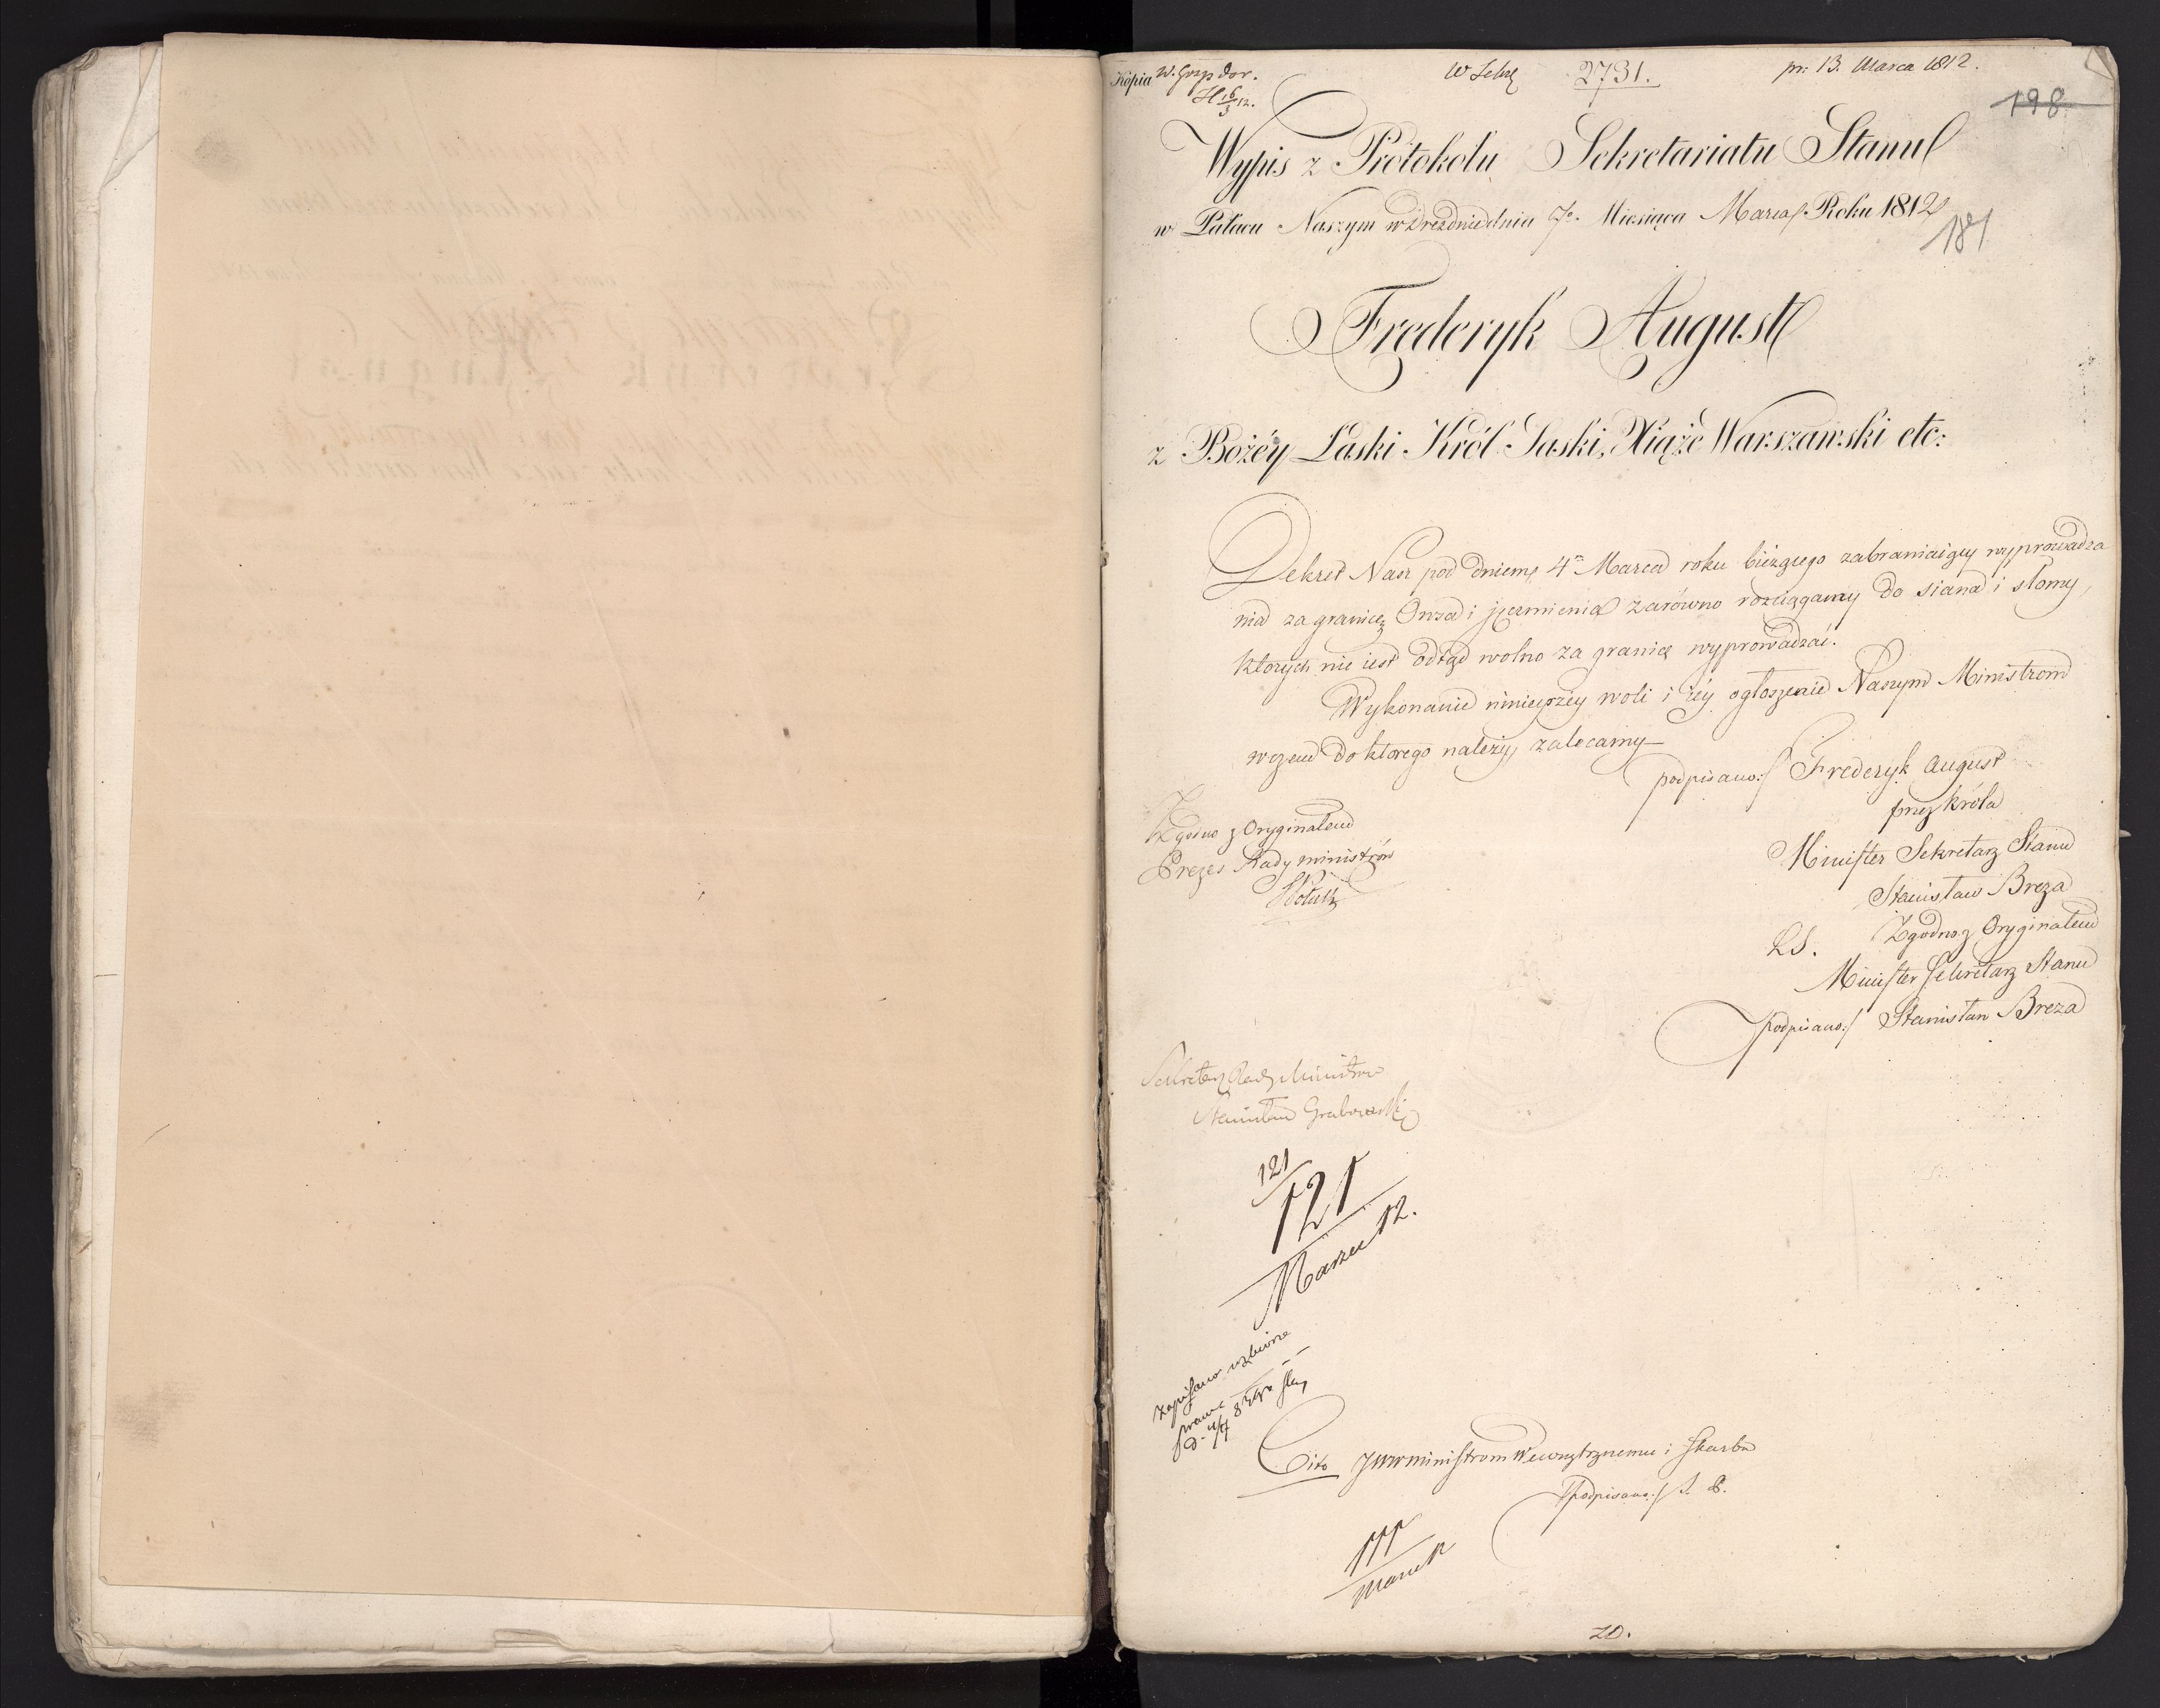 Kópia W. Gosp dor. W Sekr 2731. pr: 13. Marca 1812.
16/3 12.
198
Wypis z Protokołu Sekretariatu Stanu
w Pałacu Naszym w Dreźnie dnia 7o. Miesiąca Marca Roku 1812
181
Frederyk August
z Bożéy Łaski Król Saski, Xiąże Warszawski etc:
Dekret Nasz pod dniem 4m Marca roku bieżącego zabraniaiący wyprowadza
nia za granicę Owsa i jęczmienia zarówno rozciągamy do siana i słomy,
ktorych nie iest odtąd wolno za granicę wyprowadzać.
Wykonanie ninieyszéy woli i iéy ogłoszenie Naszym Ministrom
wczem do ktorego należy, zalecamy
podpisano:/ Frederyk August
przez króla
Minister Sekretarz Stanu
Stanisław Breza
Zgodno z Oryginałem
Prezes Rady Ministrów
Potocki
LS. Zgodno z Oryginałem
Minister Sekretarz Stanu
podpisano:/ Stanisław Breza
Sekretarz Rady Ministrow
Stanisław Grabowski
121
121
Marca 12.
zapisano wzbiorze
praw
Cito JWW Ministrom Wewnętrznemu i Skarbu
podpisano:/ S. B.
111
Marca 12
ZD.